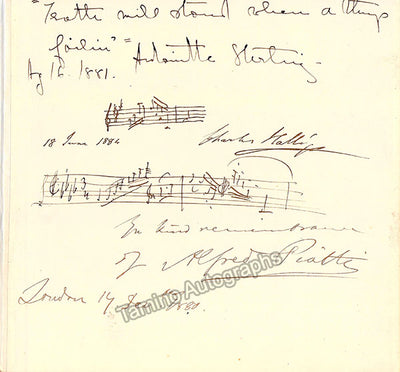 "Troth will stand when a' things
failin'" = Antoinette Sterling.
Ag 16. 1881.
18 June 1884 Charles Hallé
In kind remembrance
of Alfredo Piatti
London 14
Tamino Autographs